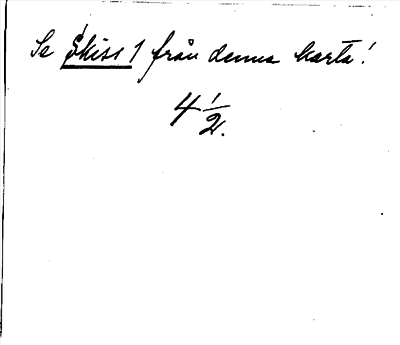 Se Skiss 1 från denna karta!
4 1/2.